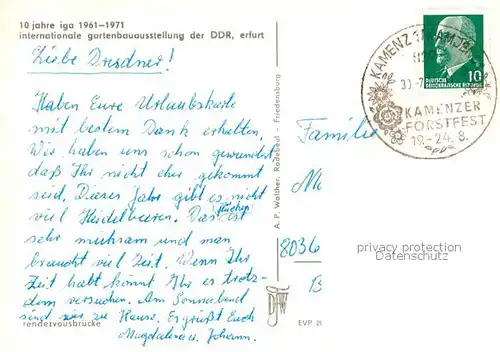 10 jahre iga 1961–1971
internationale gartenbauausstellung der DDR, erfurt
Liebe Dresdner!
Haben Eure Urlaubskarte
mit bestem Dank erhalten.
Wir haben uns schon gewundert
daß Ihr nicht eher gekommt
seid. Dieses Jahr gibt es nicht
viel Heidelbeeren. Das ist
Pflücken
sehr mühsam und man
braucht viel Zeit. Wenn Ihr
Zeit habt könnt Ihr es trotz-
dem versuchen. Am Sonnabend
sind wir zu Hause. Es grüßt Euch
Magdalena u. Johann.
rendezvousbrücke
A. P. Walther, Radebeul - Friedensburg
EVP
KAMENZ 1
KAMJENC
KAMENZER
FORSTFEST
19.-24. 8.
DEUTSCHE
DEMOKRATISCHE REPUBLIK
10
Familie
8036
privacy protection
Datenschutz